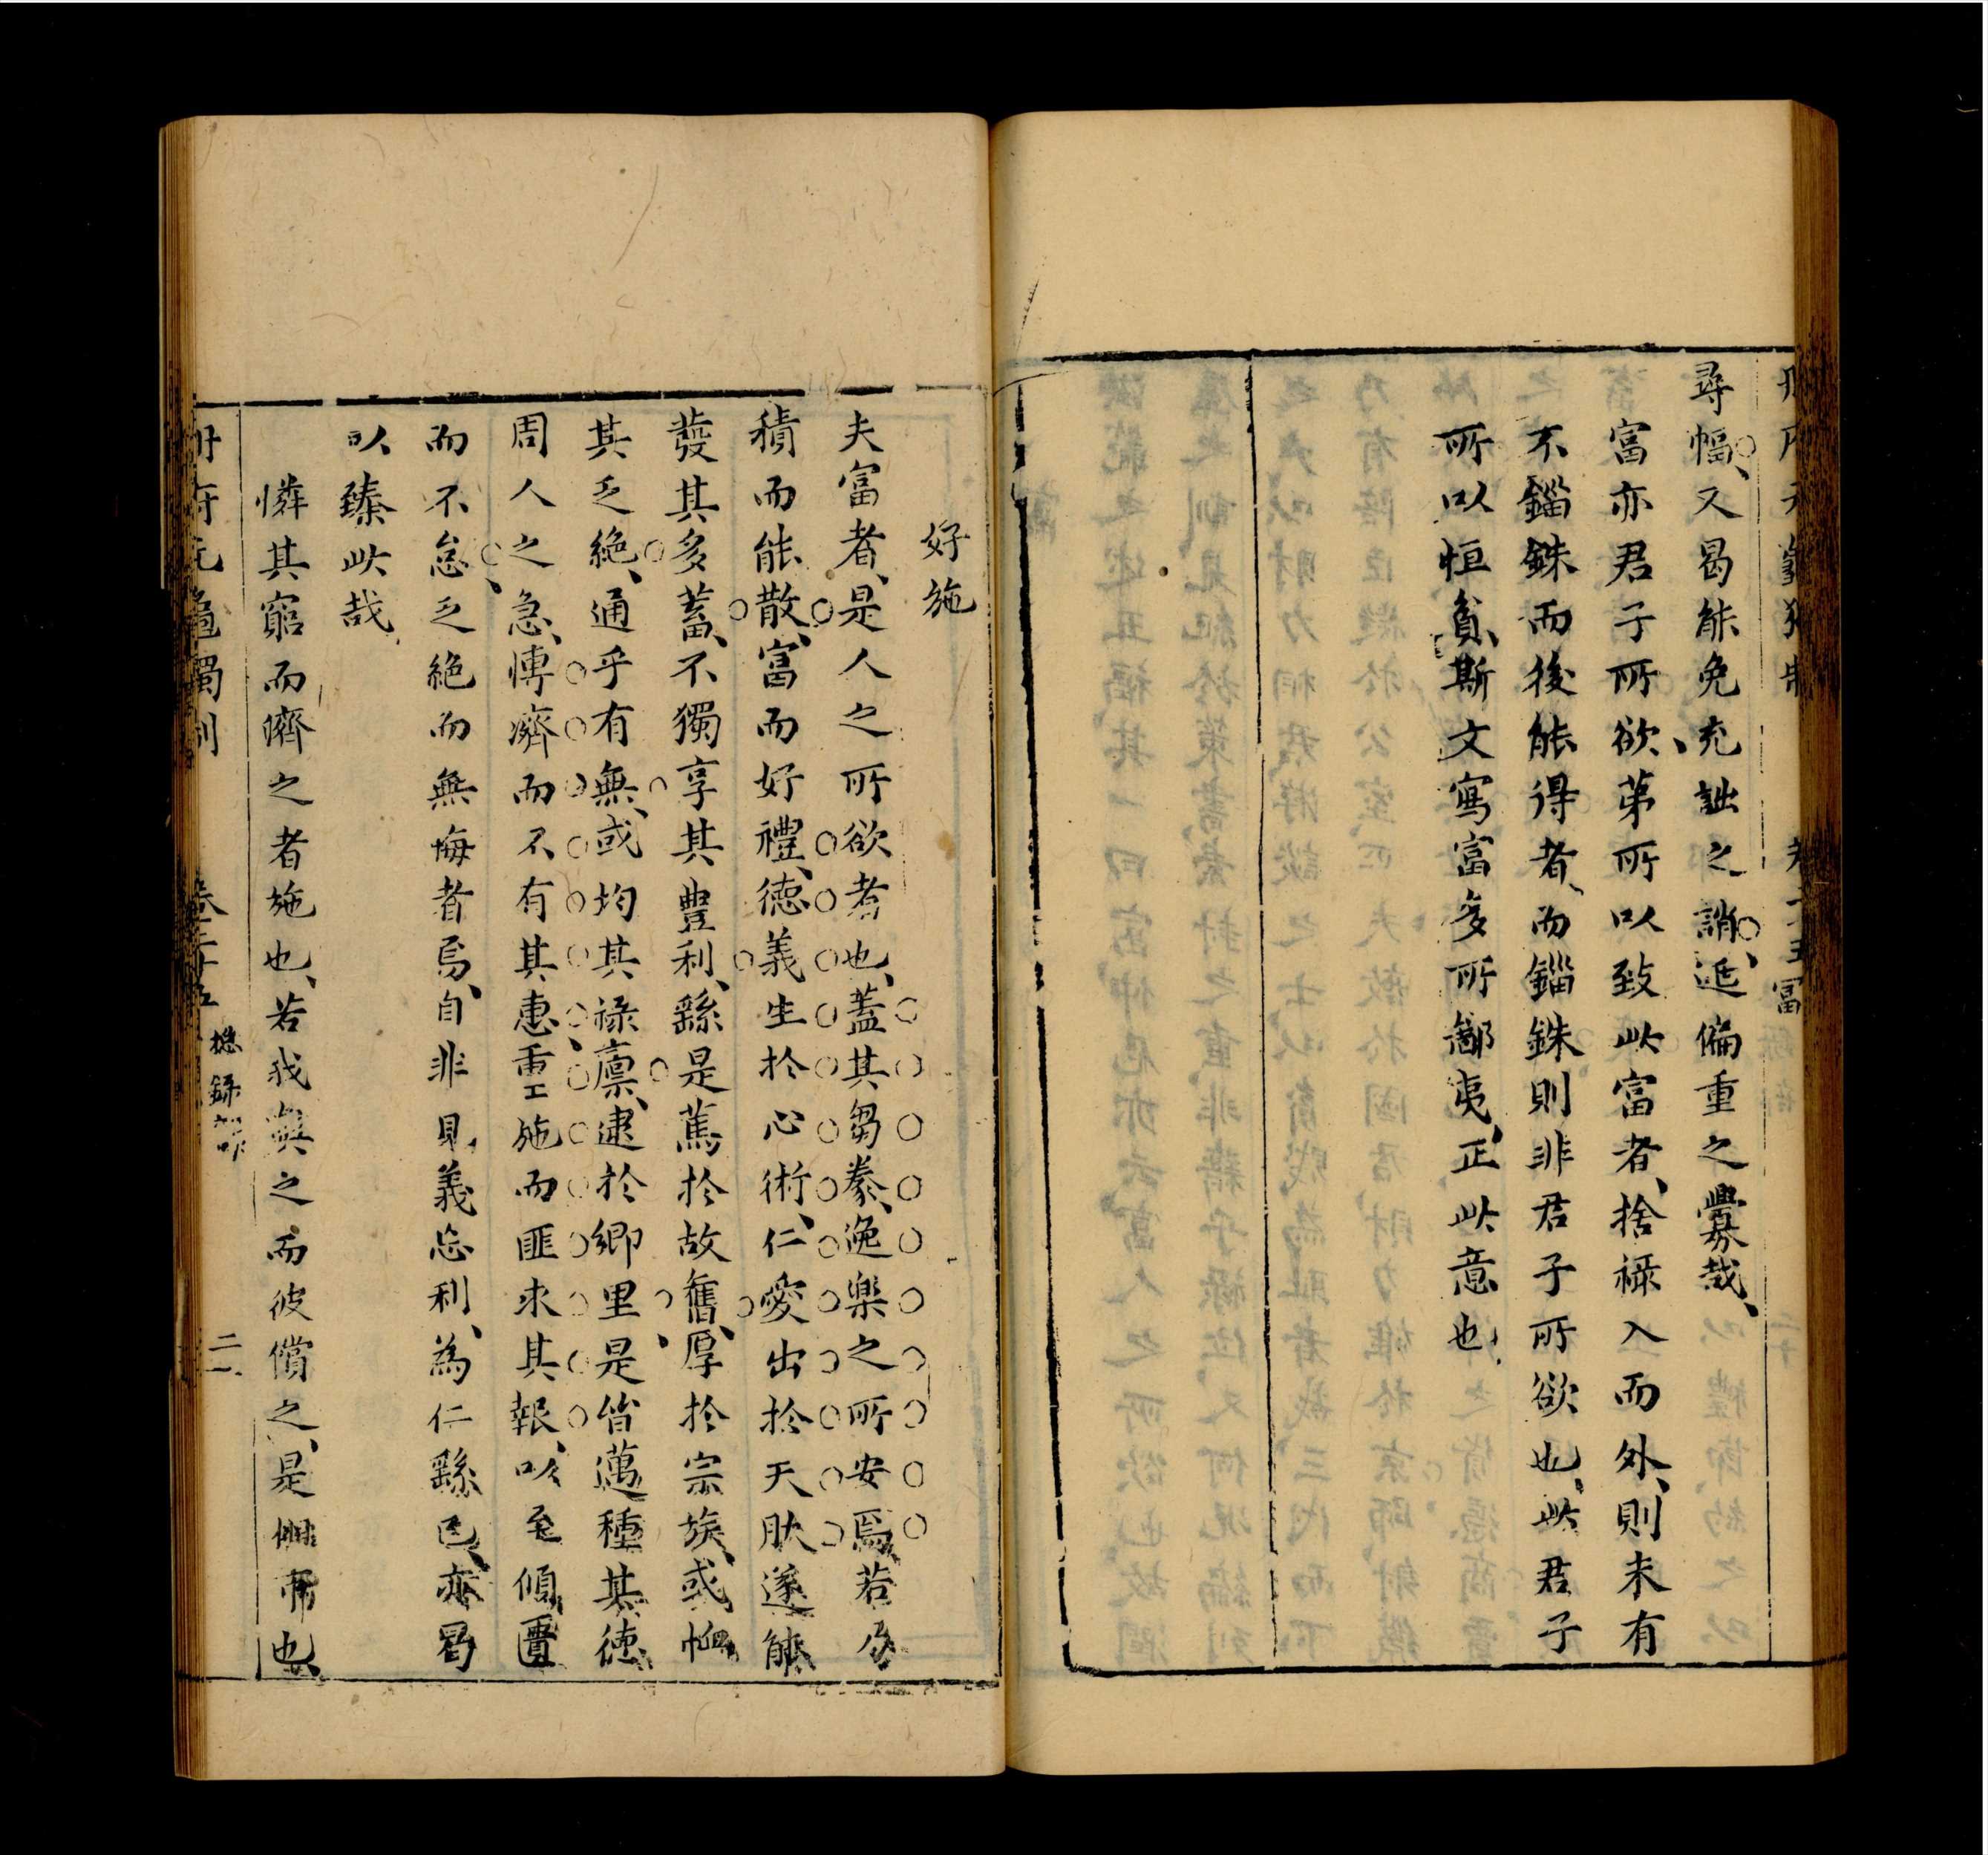 尋幅、又曷能免充詘之誚、近偏重之釁哉、
富亦君子所欲、第所以致此富者、捨祿入而外、則未有
不錙銖而後能得者、而錙銖則非君子所欲也、此君子
所以恒貧、斯文寫富多所鄙夷、正此意也、
好施
夫富者、是人之所欲者也、蓋其芻豢、逸樂之所安焉、若乃
積而能散、富而好禮、德義生於心術、仁愛出於天肽、遂能
發其多蓄、不獨享其豐利、繇是篤於故舊、厚於宗族、或恤
其乏絕、通乎有無、或均其祿廩、逮於鄉里、是皆邁種其德、
周人之急、博濟而不有其惠、重施而匪求其報、以至傾匱
而不怠、乏絕而無悔者焉、自非見義忘利、為仁繇己、亦曷
以臻此哉、
憐其窮而濟之者施也、若我與之而彼償之、是俐市也、
冊府元龜獨制
卷二十五
總錄部
二一